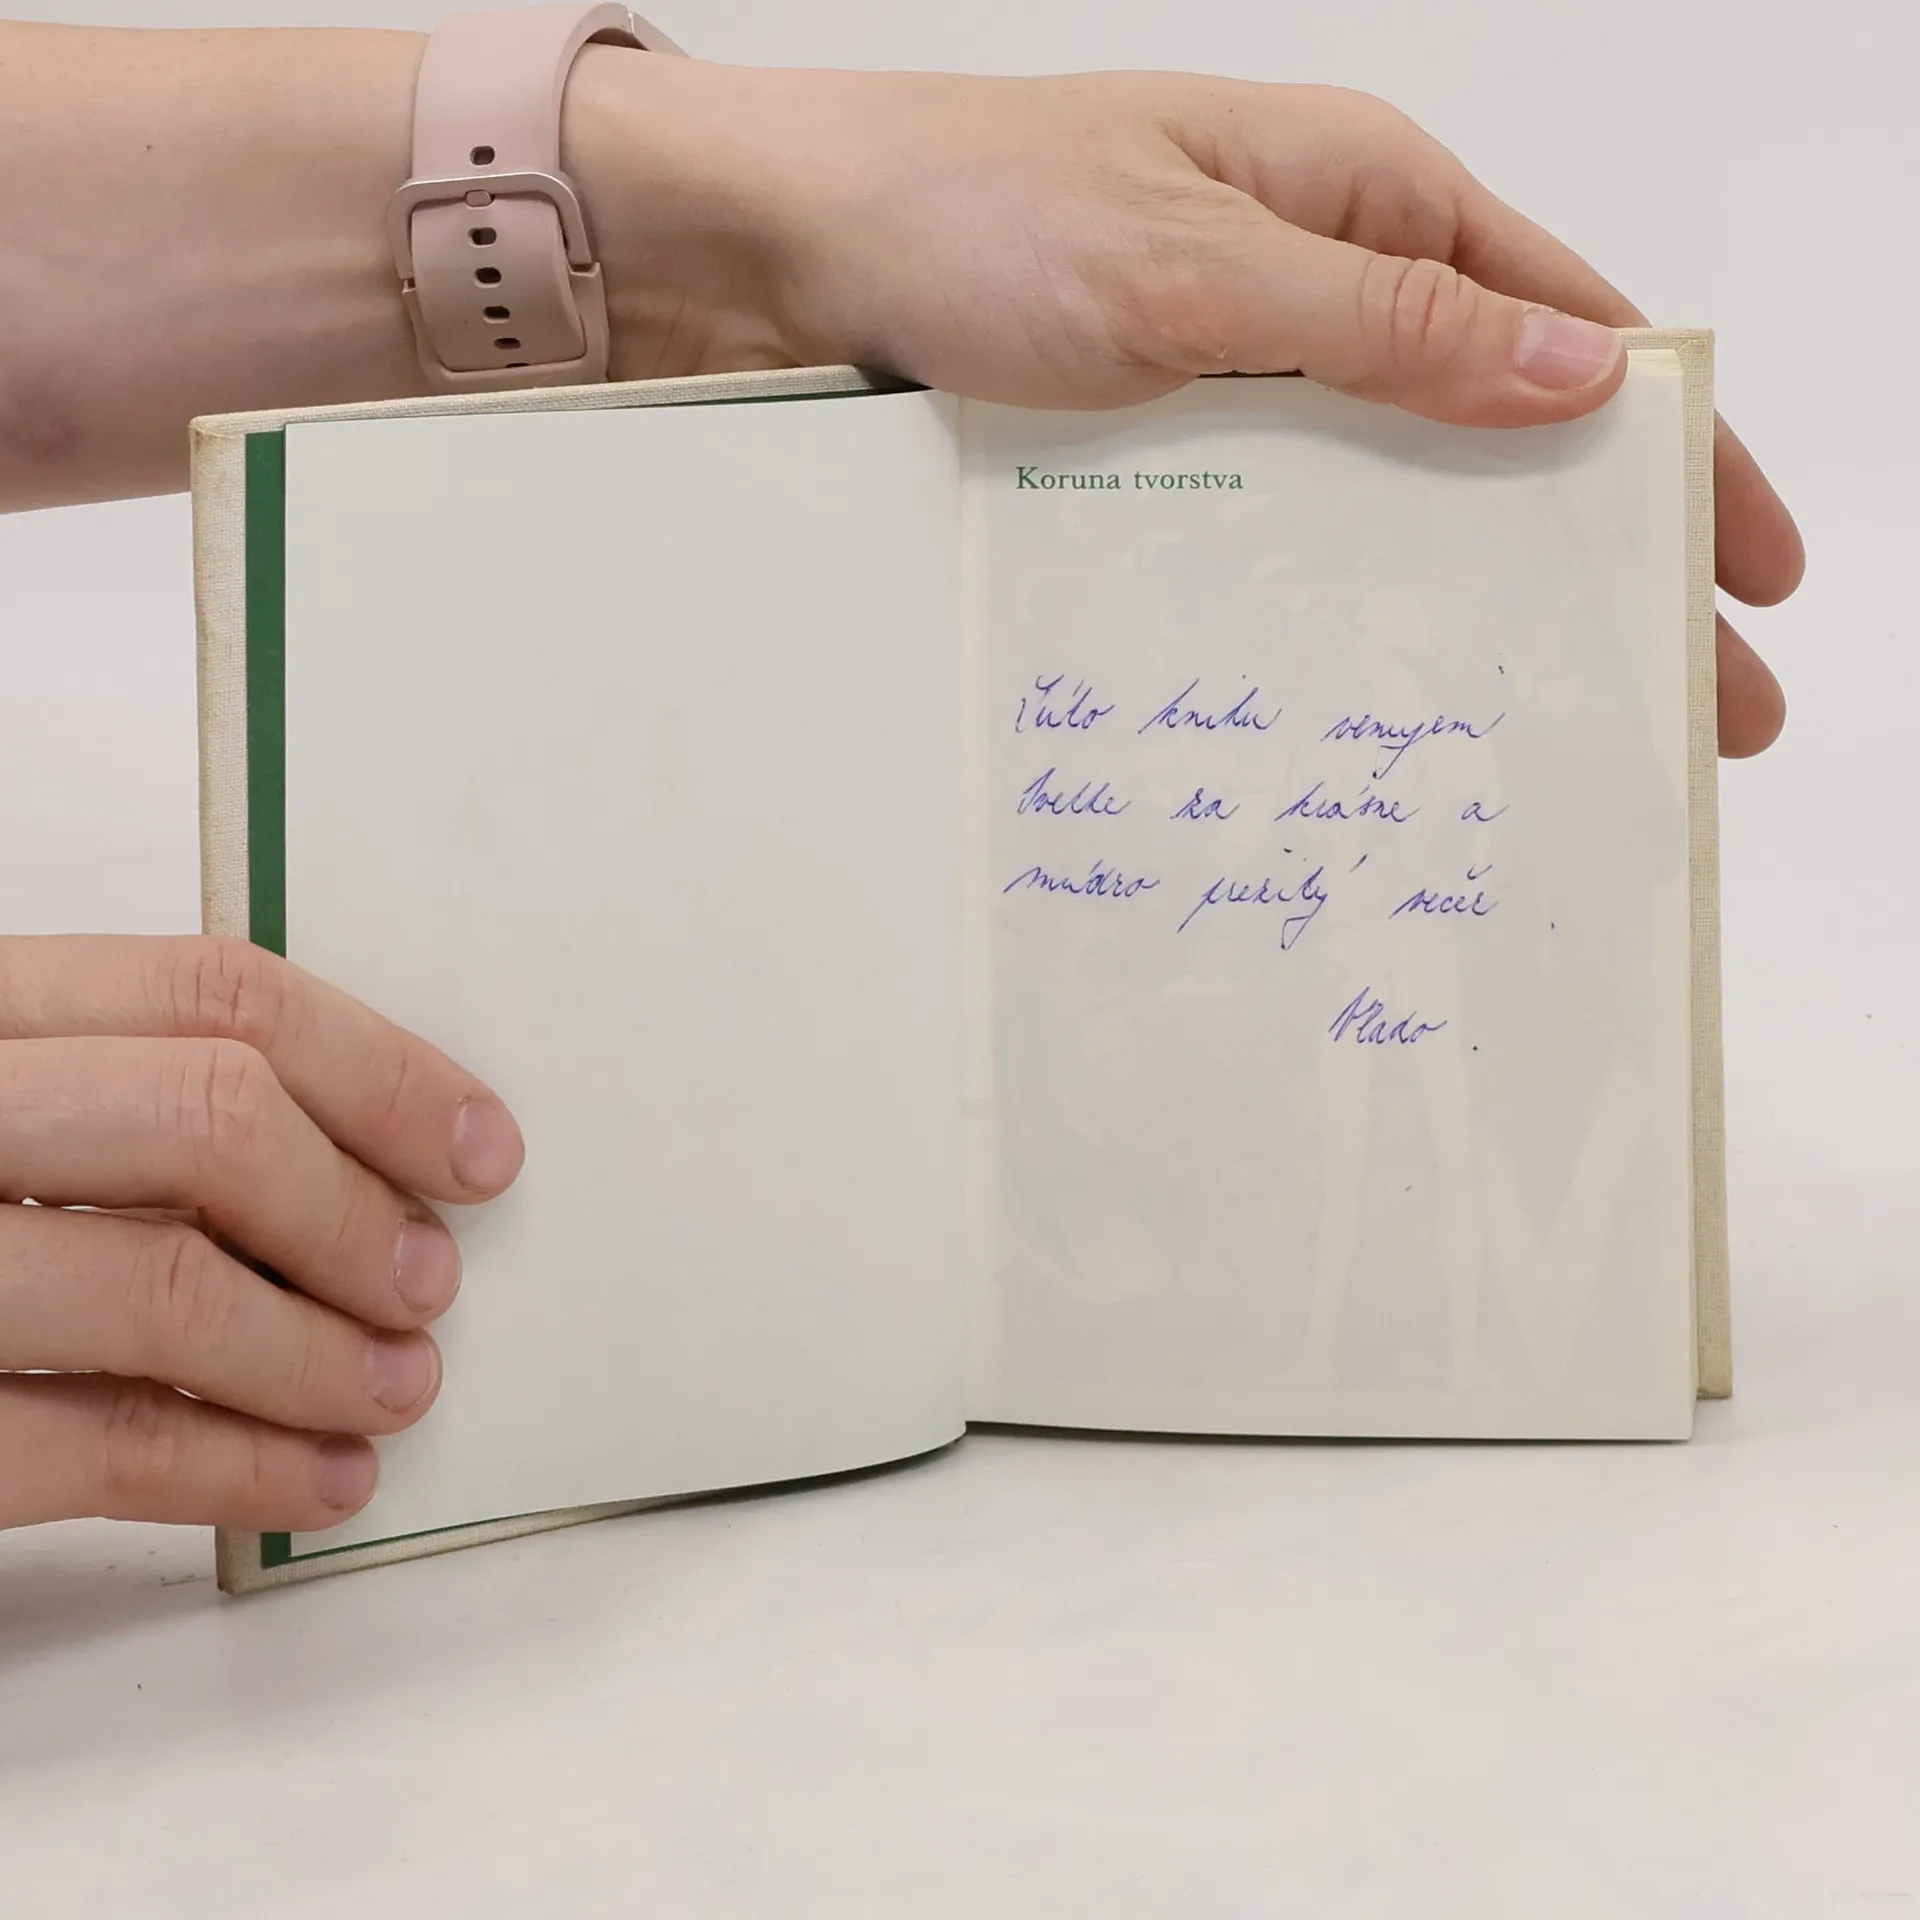 Koruna tvorstva
Túto knihu venujem
Svetke za krásne a
múdro prežitý večer.
Vlado.